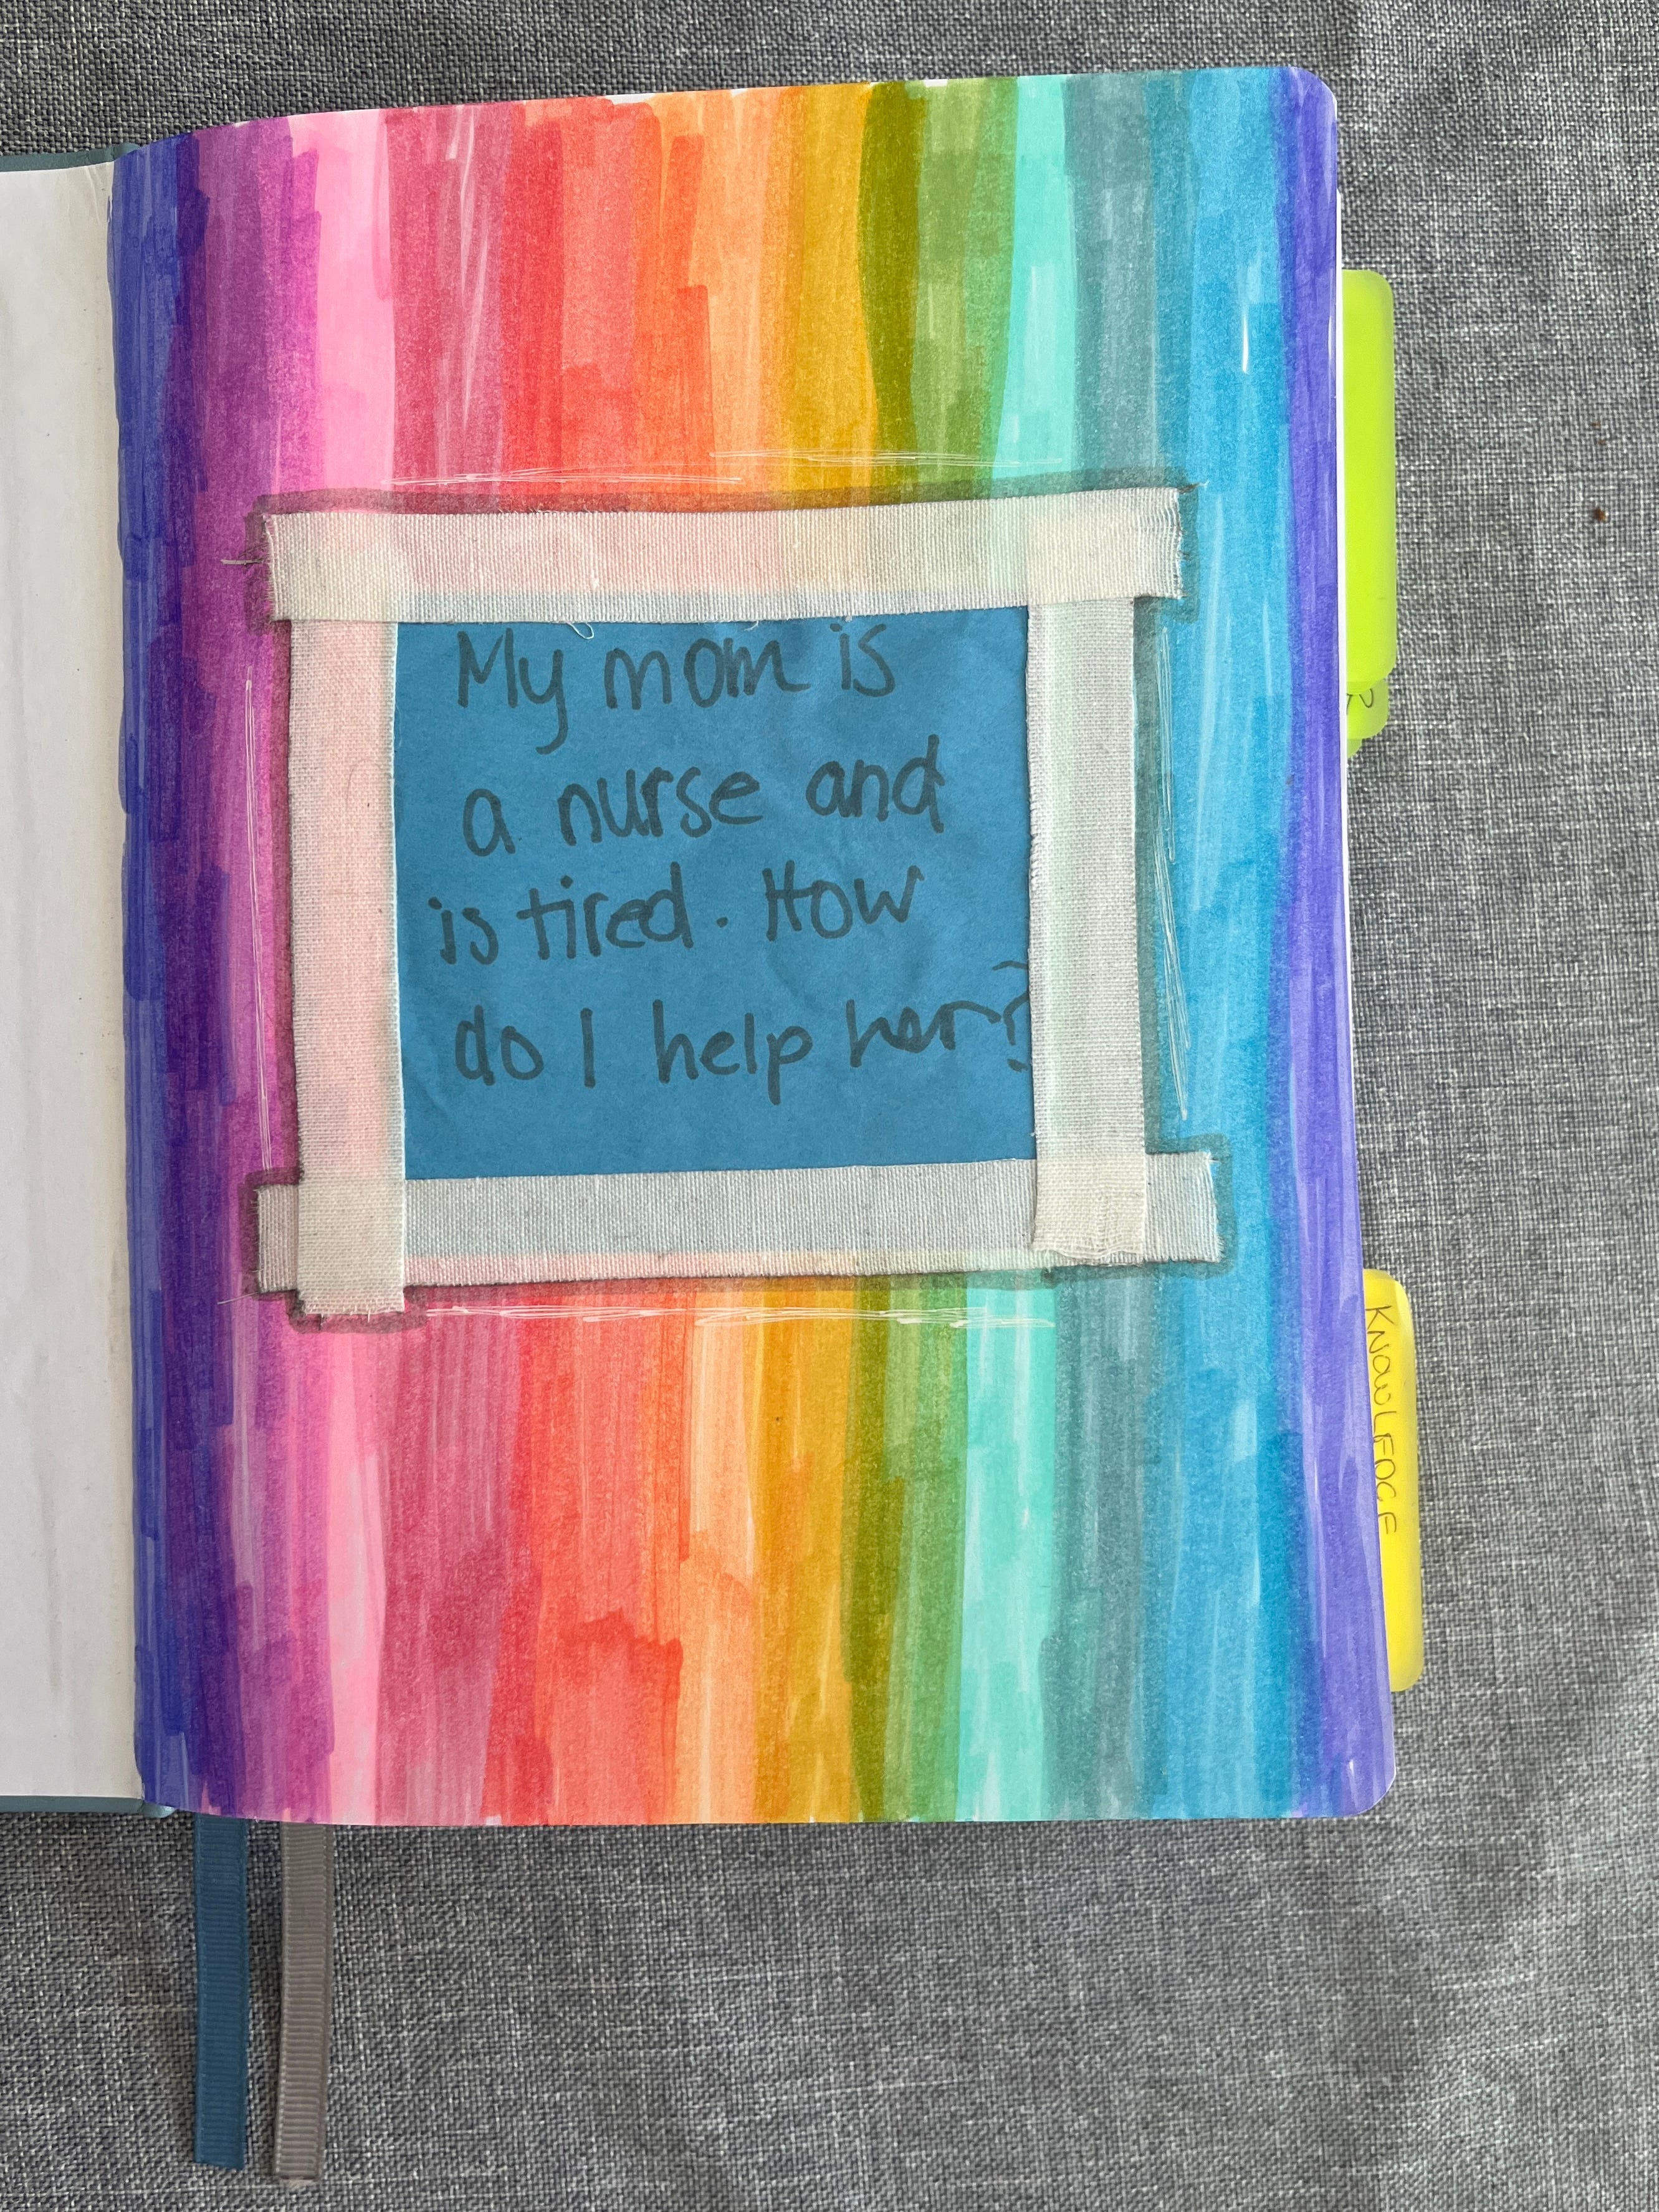 My mom is
a nurse and
is tired. How
do I help her?
KNOWLEDGE